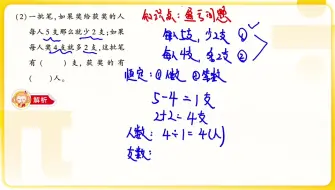 (2)一批笔,如果奖给获奖的人
每人5支那么就少2支;如果
每人奖4支就多2支,这批笔
有(    )支,获奖的有
(    )人。
解析
知识点：盈亏问题
每人5支，少2支 ①
每人4支，多2支 ②
恒定：①人数 ②笔数
5-4=1支
2+2=4支
人数：4÷1=4(人)
支数：